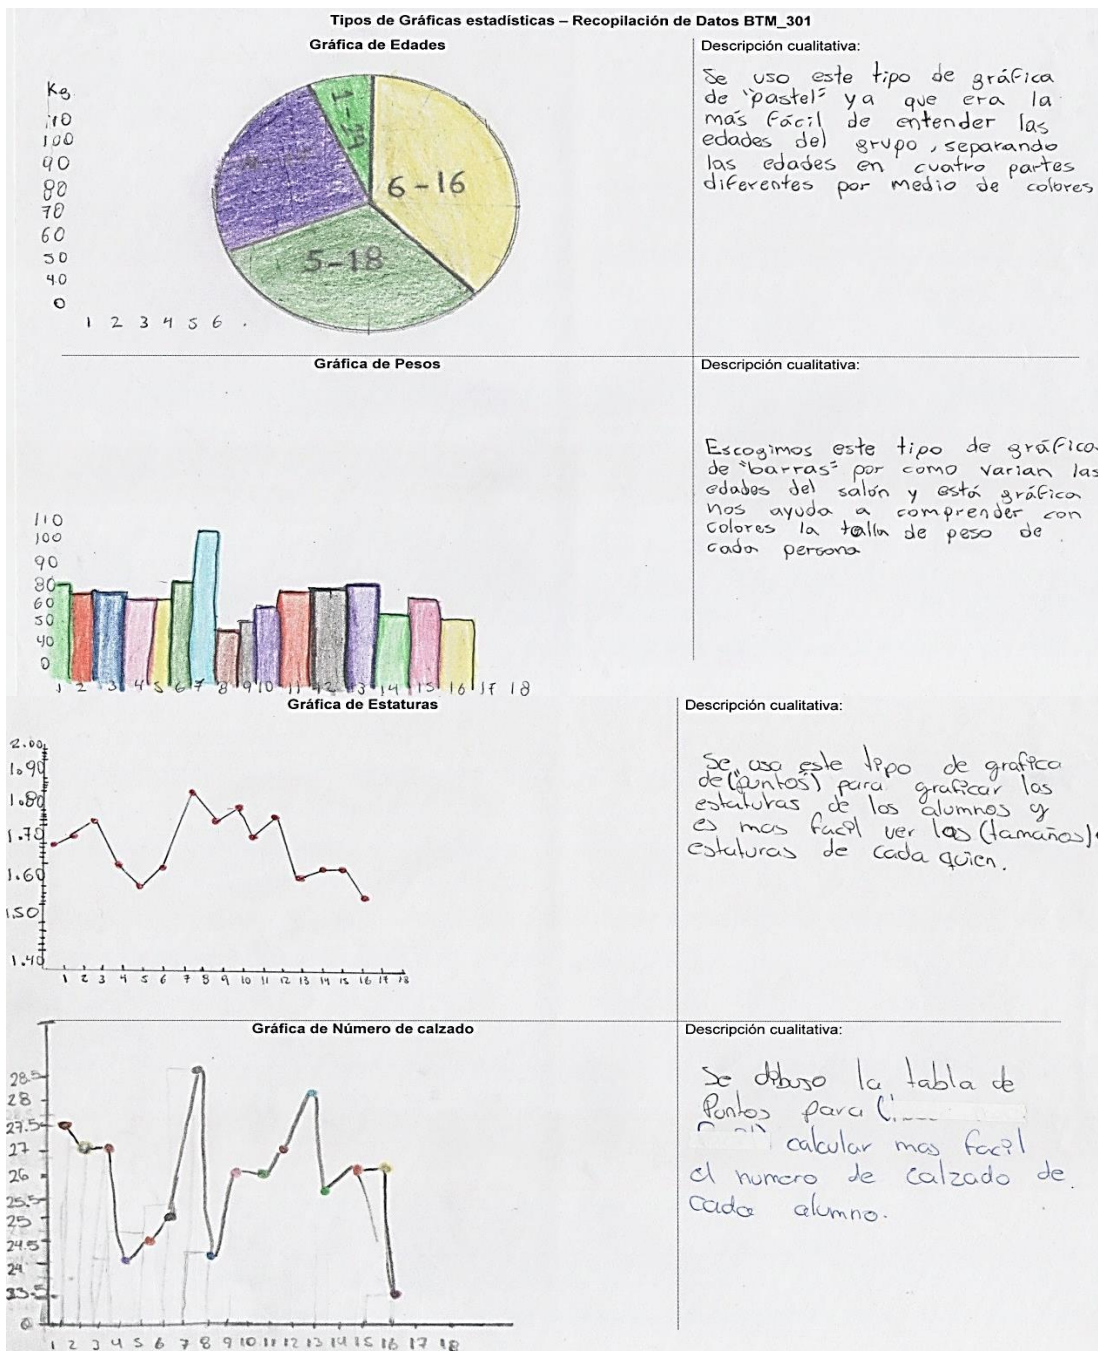 Tipos de Gráficas estadísticas – Recopilación de Datos BTM_301
Gráfica de Edades
Kg
110
100
90
80
70
60
50
40
0
1 2 3 4 5 6 .
6-16
5-18
Descripción cualitativa:
Se uso este tipo de gráfica
de "pastel" ya que era la
más fácil de entender las
edades del grupo, separando
las edades en cuatro partes
diferentes por medio de colores
Gráfica de Pesos
110
100
90
80
60
50
40
0
1 2 3 4 5 6 7 8 9 10 11 12 13 14 15 16 17 18
Descripción cualitativa:
Escogimos este tipo de gráfica
de "barras" por como varian las
edades del salón y está gráfica
nos ayuda a comprender con
colores la talla de peso de
cada persona
Gráfica de Estaturas
2.00
1.90
1.80
1.70
1.60
1.50
1.40
1 2 3 4 5 6 7 8 9 10 11 12 13 14 15 16 17 18
Descripción cualitativa:
Se usa este tipo de grafica
de ("puntos") para graficar las
estaturas de los alumnos y
es mas facil ver las (tamaños)
estaturas de cada quien.
Gráfica de Número de calzado
28.5
28
27.5
27
26
25.5
25
24.5
24
23.5
0
1 2 3 4 5 6 7 8 9 10 11 12 13 14 15 16 17 18
Descripción cualitativa:
Se dibujo la tabla de
Puntos para
calcular mas facil
el numero de calzado de
cada alumno.